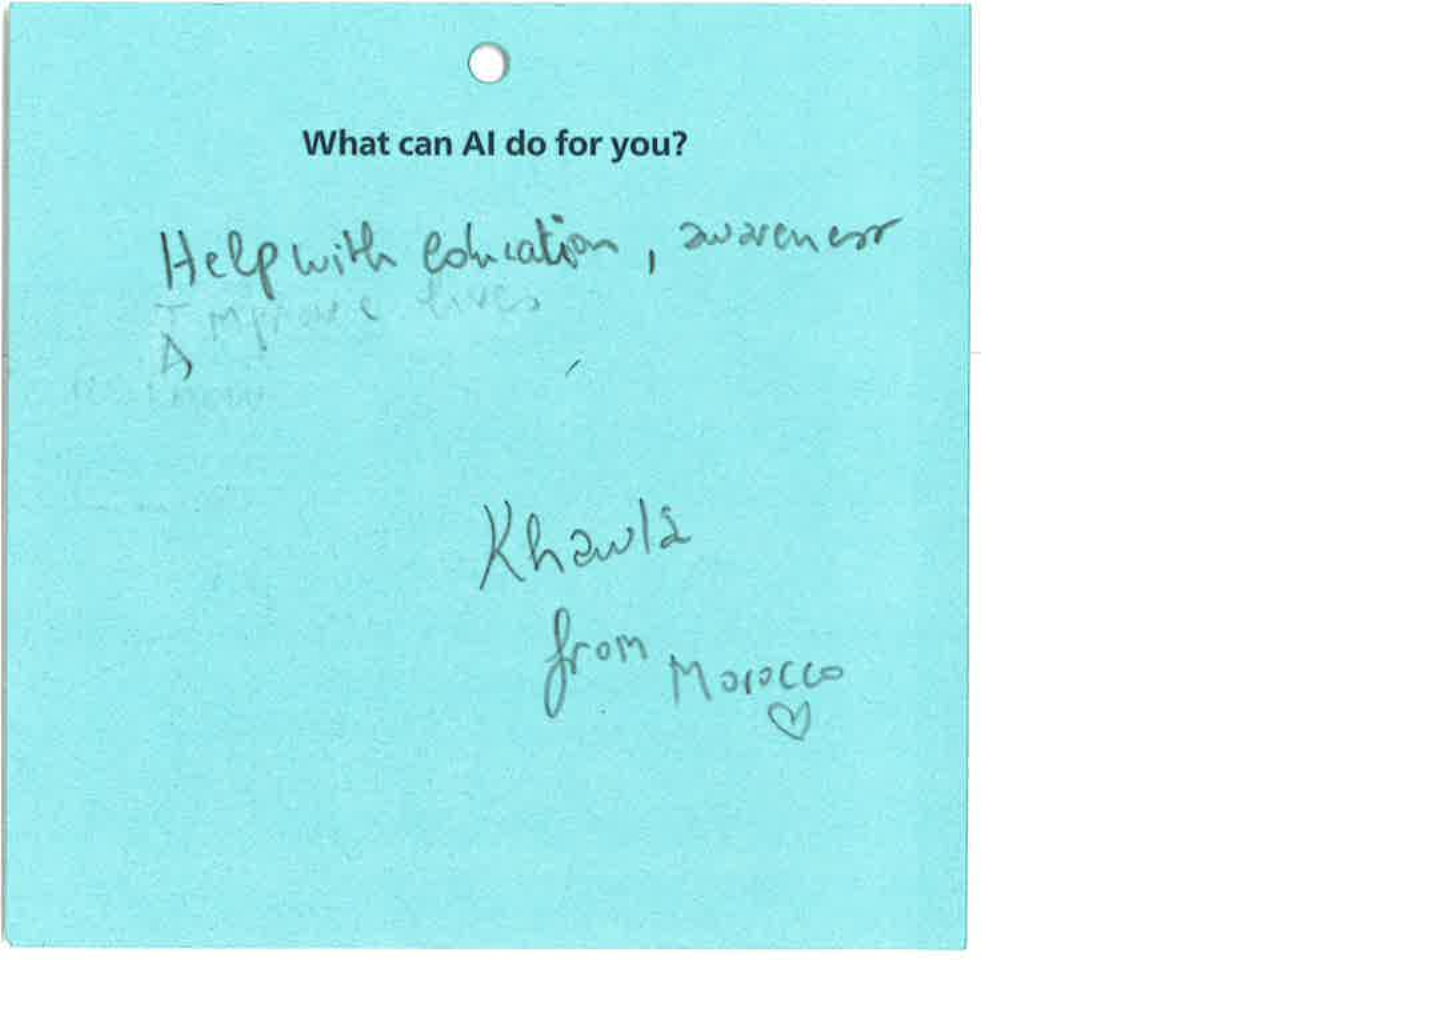 What can AI do for you?
Help with education, awareness
Improve lives
A
Khawla
from Morocco